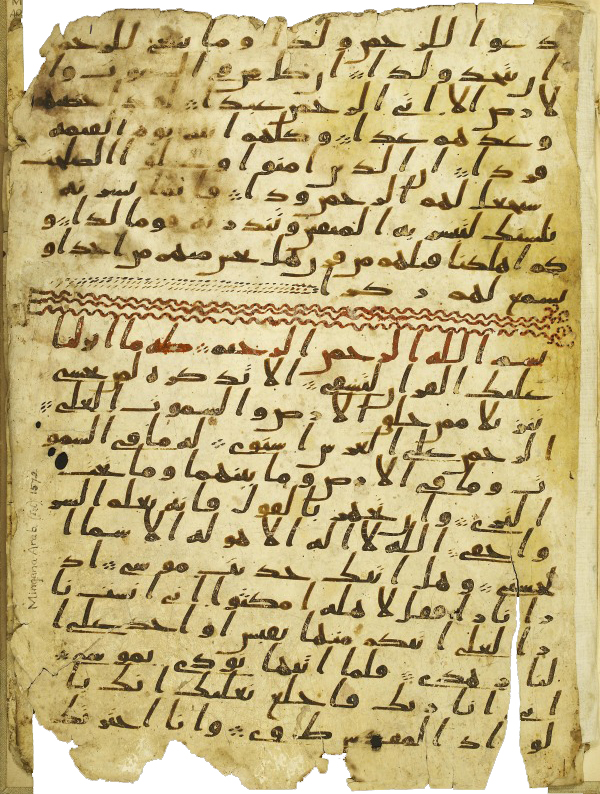 د عوا للرحمن ولدا وما ينبغي للرحمن
ان يتخذ ولدا ان كل من في السموت وا
لارض الا اتي الرحمن عبدا لقد احصيهم
وعدهم عدا وكلهم اتيه يوم القيمه
فردا ان الذين امنوا وعملوا الصلحت
سيجعل لهم الرحمن ودا فانما يسرنه
بلسنك لتبشر به المتقين وتنذر به قوما لدا و
كم اهلكنا قبلهم من قرن هل تحس منهم من احد او
تسمع لهم ركزا
بسم الله الرحمن الرحيم طه ما انزلنا
عليك القران لتشقى الا تذكره لمن يخشى
تنزيلا ممن خلق الارض والسموت العلى
الرحمن على العرش استوى له ما في السمو
ت وما في الارض وما بينهما وما تحت
الثرى وان تجهر بالقول فانه يعلم السر
واخفى الله لا اله الا هو له الاسما ا
لحسنى وهل اتيك حديث موسى اذ
را نارا فقل لاهله امكثوا اني انست نا
را لعلي اتيكم منها بقبس او اجد على ا
لنار هدى فلما اتيها نودي يموسى
اني انا ربك فاخلع نعليك انك با
لواد المقدس طوى وانا اخترتك
Mingana Arab. Isl. 1572